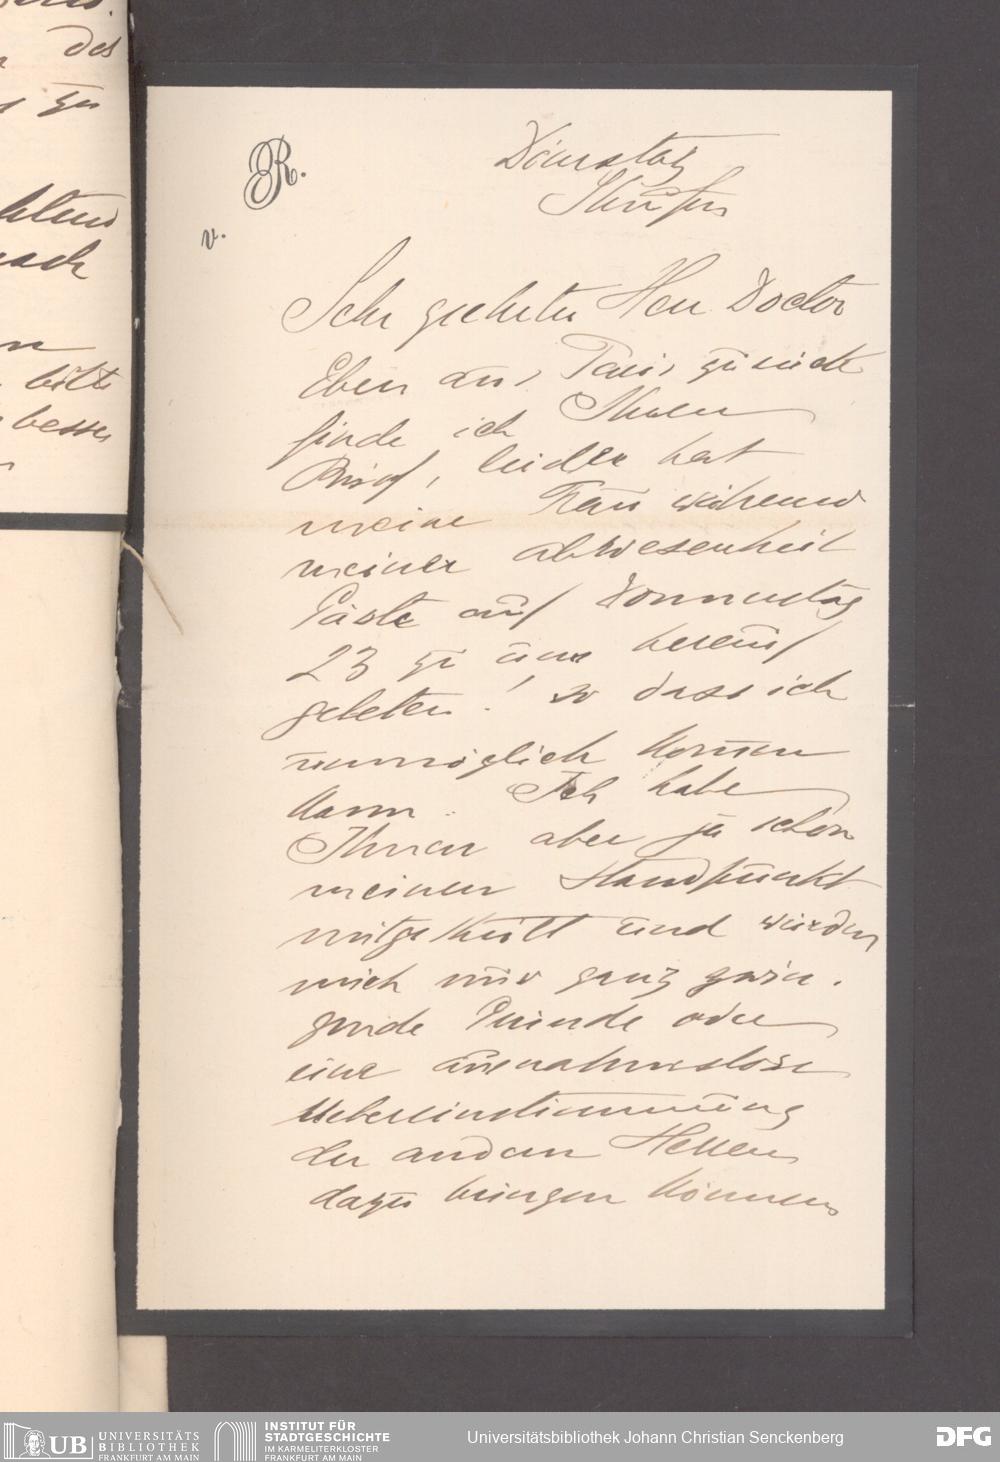 des
zu
nach
bitte
besser
R.
v.
Dienstag
Sehr geehrter Herr Doctor
Eben aus Paris zurück
finde ich Ihren
Brief, leider hat
meine Frau während
meiner Abwesenheit
Gäste auf Donnerstag
23 zu uns herauf
gebeten! so dass ich
unmöglich kommen
kann. Ich habe
Ihnen aber ja schon
meinen Standpunkt
mitgetheilt und würden
mich nur ganz zwin.
gende Gründe oder
eine ausnahmslose
Uebereinstimmung
der andern Herren
dazu bringen können
UB UNIVERSITÄTS
BIBLIOTHEK
FRANKFURT AM MAIN
INSTITUT FÜR
STADTGESCHICHTE
IM KARMELITERKLOSTER
FRANKFURT AM MAIN
Universitätsbibliothek Johann Christian Senckenberg
DFG